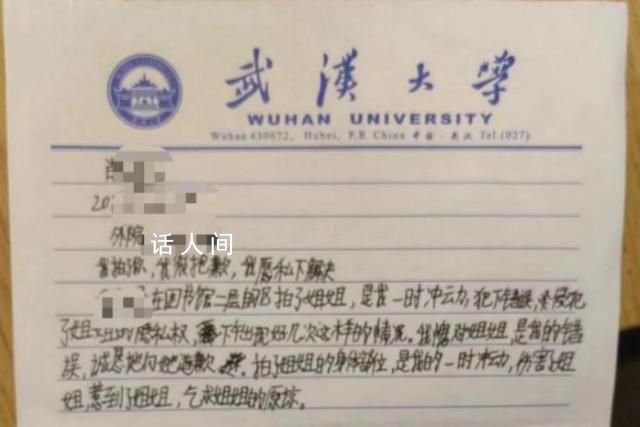 武漢大學
WUHAN UNIVERSITY
Wuhan 430072, Hubei, P.R. China 中国·武汉 Tel.(027)
20
外院
话人间
我拍了你，我很抱歉，我愿私下解决
在图书馆二层拍了姐姐，是我一时冲动，犯下错误，侵犯
了姐姐的隐私权，下出现好几次这样的情况。我愧对姐姐，是我的错
误，诚恳地向她道歉，拍了姐姐的身体部位，是我的一时冲动，伤害了姐
姐，惹到了姐姐，乞求姐姐的原谅。